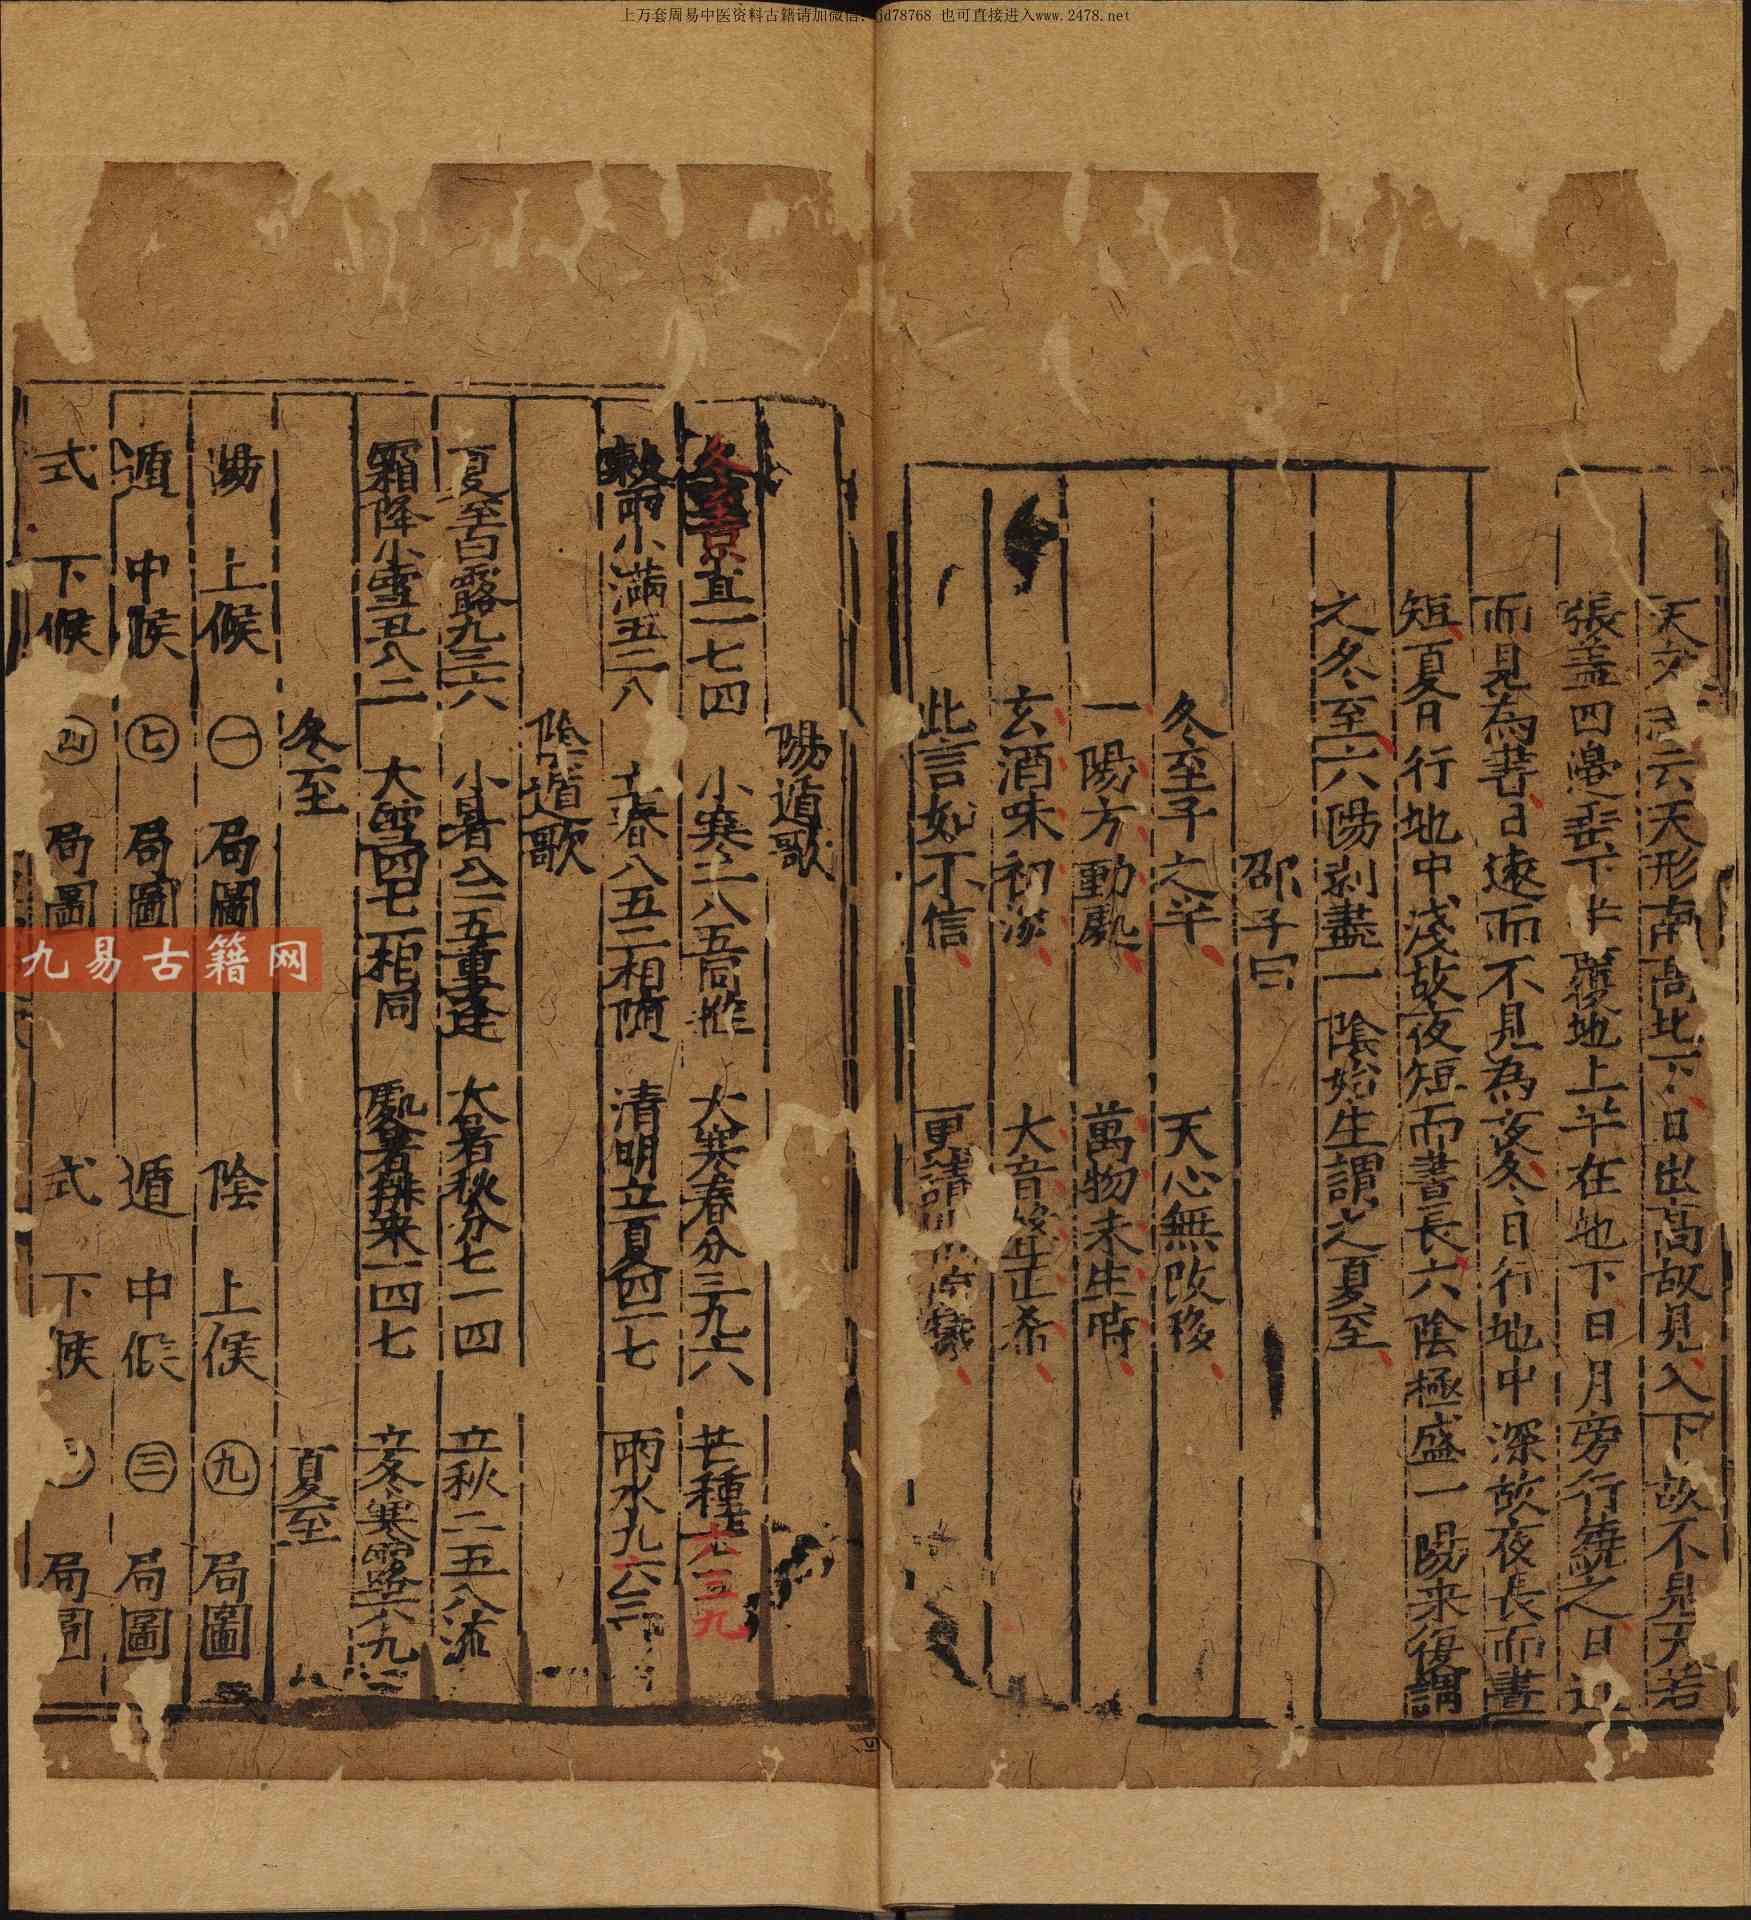 上万套周易中医资料古籍请加微信:jd78768 也可直接进入www.2478.net
天文云天形南高北下日出高故見入下故不見天若
張盖四邊垂下半覆地上半在地下日月旁行繞之日近
而見為晝日遠而不見為夜冬日行地中深故夜長而晝
短夏日行地中淺故夜短而晝長六陰極盛一陽来復謂
之冬至六陽剥盡一陰始生謂之夏至
邵子曰
冬至子之半 天心無改移
一陽方動處 萬物未生時
玄酒味初淡 大音聲正希
此言如不信 更請羲
陽遁歌
冬至京直一七四 小寒二八五同推 大寒春分三九六 芒種六三九
穀雨小滿五二八 立春八五二相隨 清明立夏四一七 雨水九六三
陰遁歌
夏至白露九三六 小暑八二五重逢 大暑秋分七一四 立秋二五八流
霜降小雪五八二 大雪四七一相同 處暑排来一四七 立冬寒露六九三
冬至 夏至
陽 上候 一 局圖 陰 上候 九 局圖
遁 中候 七 局圖 遁 中候 三 局圖
式 下候 四 局圖 式 下候 局圖
九易古籍网